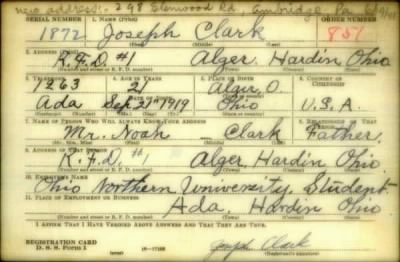 new address:- 298 Glenwood Rd, Ambridge, Pa.
SERIAL NUMBER 1. NAME (Print) ORDER NUMBER
1872 Joseph Clark 851
2. ADDRESS (Print)
R.F.D. #1 Alger Hardin Ohio
(Number and street or R. F. D. number) (Town) (County) (State)
3. TELEPHONE 4. AGE IN YEARS 5. PLACE OF BIRTH 6. COUNTRY OF CITIZENSHIP
1263 21 Alger O.
Ada Sep. 27 1919 Ohio U.S.A.
7. NAME OF PERSON WHO WILL ALWAYS KNOW YOUR ADDRESS 8. RELATIONSHIP OF THAT PERSON
Mr. Noah — Clark Father
9. ADDRESS OF THAT PERSON
R.F.D. #1 Alger Hardin Ohio
(Number and street or R. F. D. number) (Town) (County) (State)
10. EMPLOYER'S NAME
Ohio Northern University, Student
11. PLACE OF EMPLOYMENT OR BUSINESS
Ada, Hardin Ohio
(Number and street or R. F. D. number) (Town) (County) (State)
I AFFIRM THAT I HAVE VERIFIED ABOVE ANSWERS AND THAT THEY ARE TRUE.
REGISTRATION CARD
D. S. S. Form 1
Joseph Clark